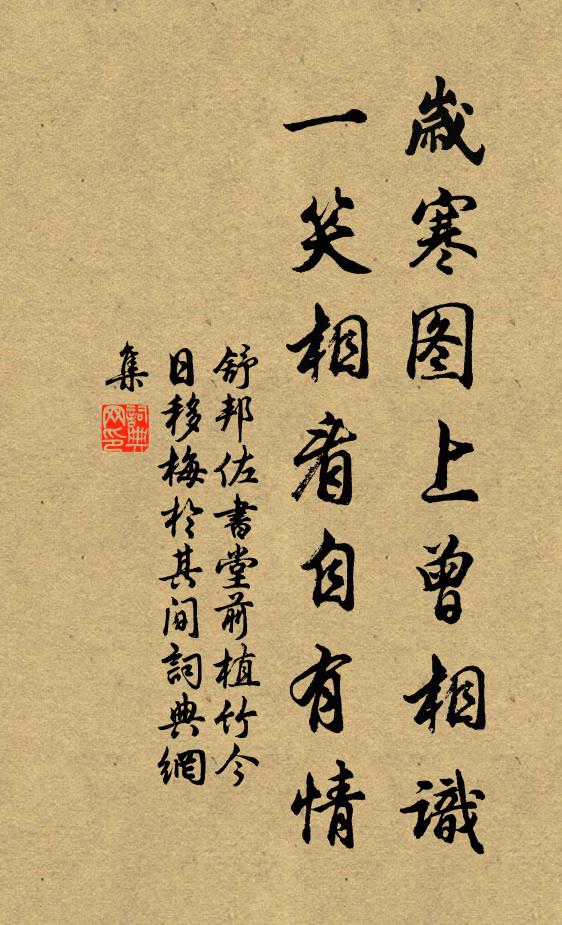 歲寒图上曾相識
一笑相看自有情
舒邦佐書堂前植竹今
日移梅於其间詞典網
集
詞典
网印